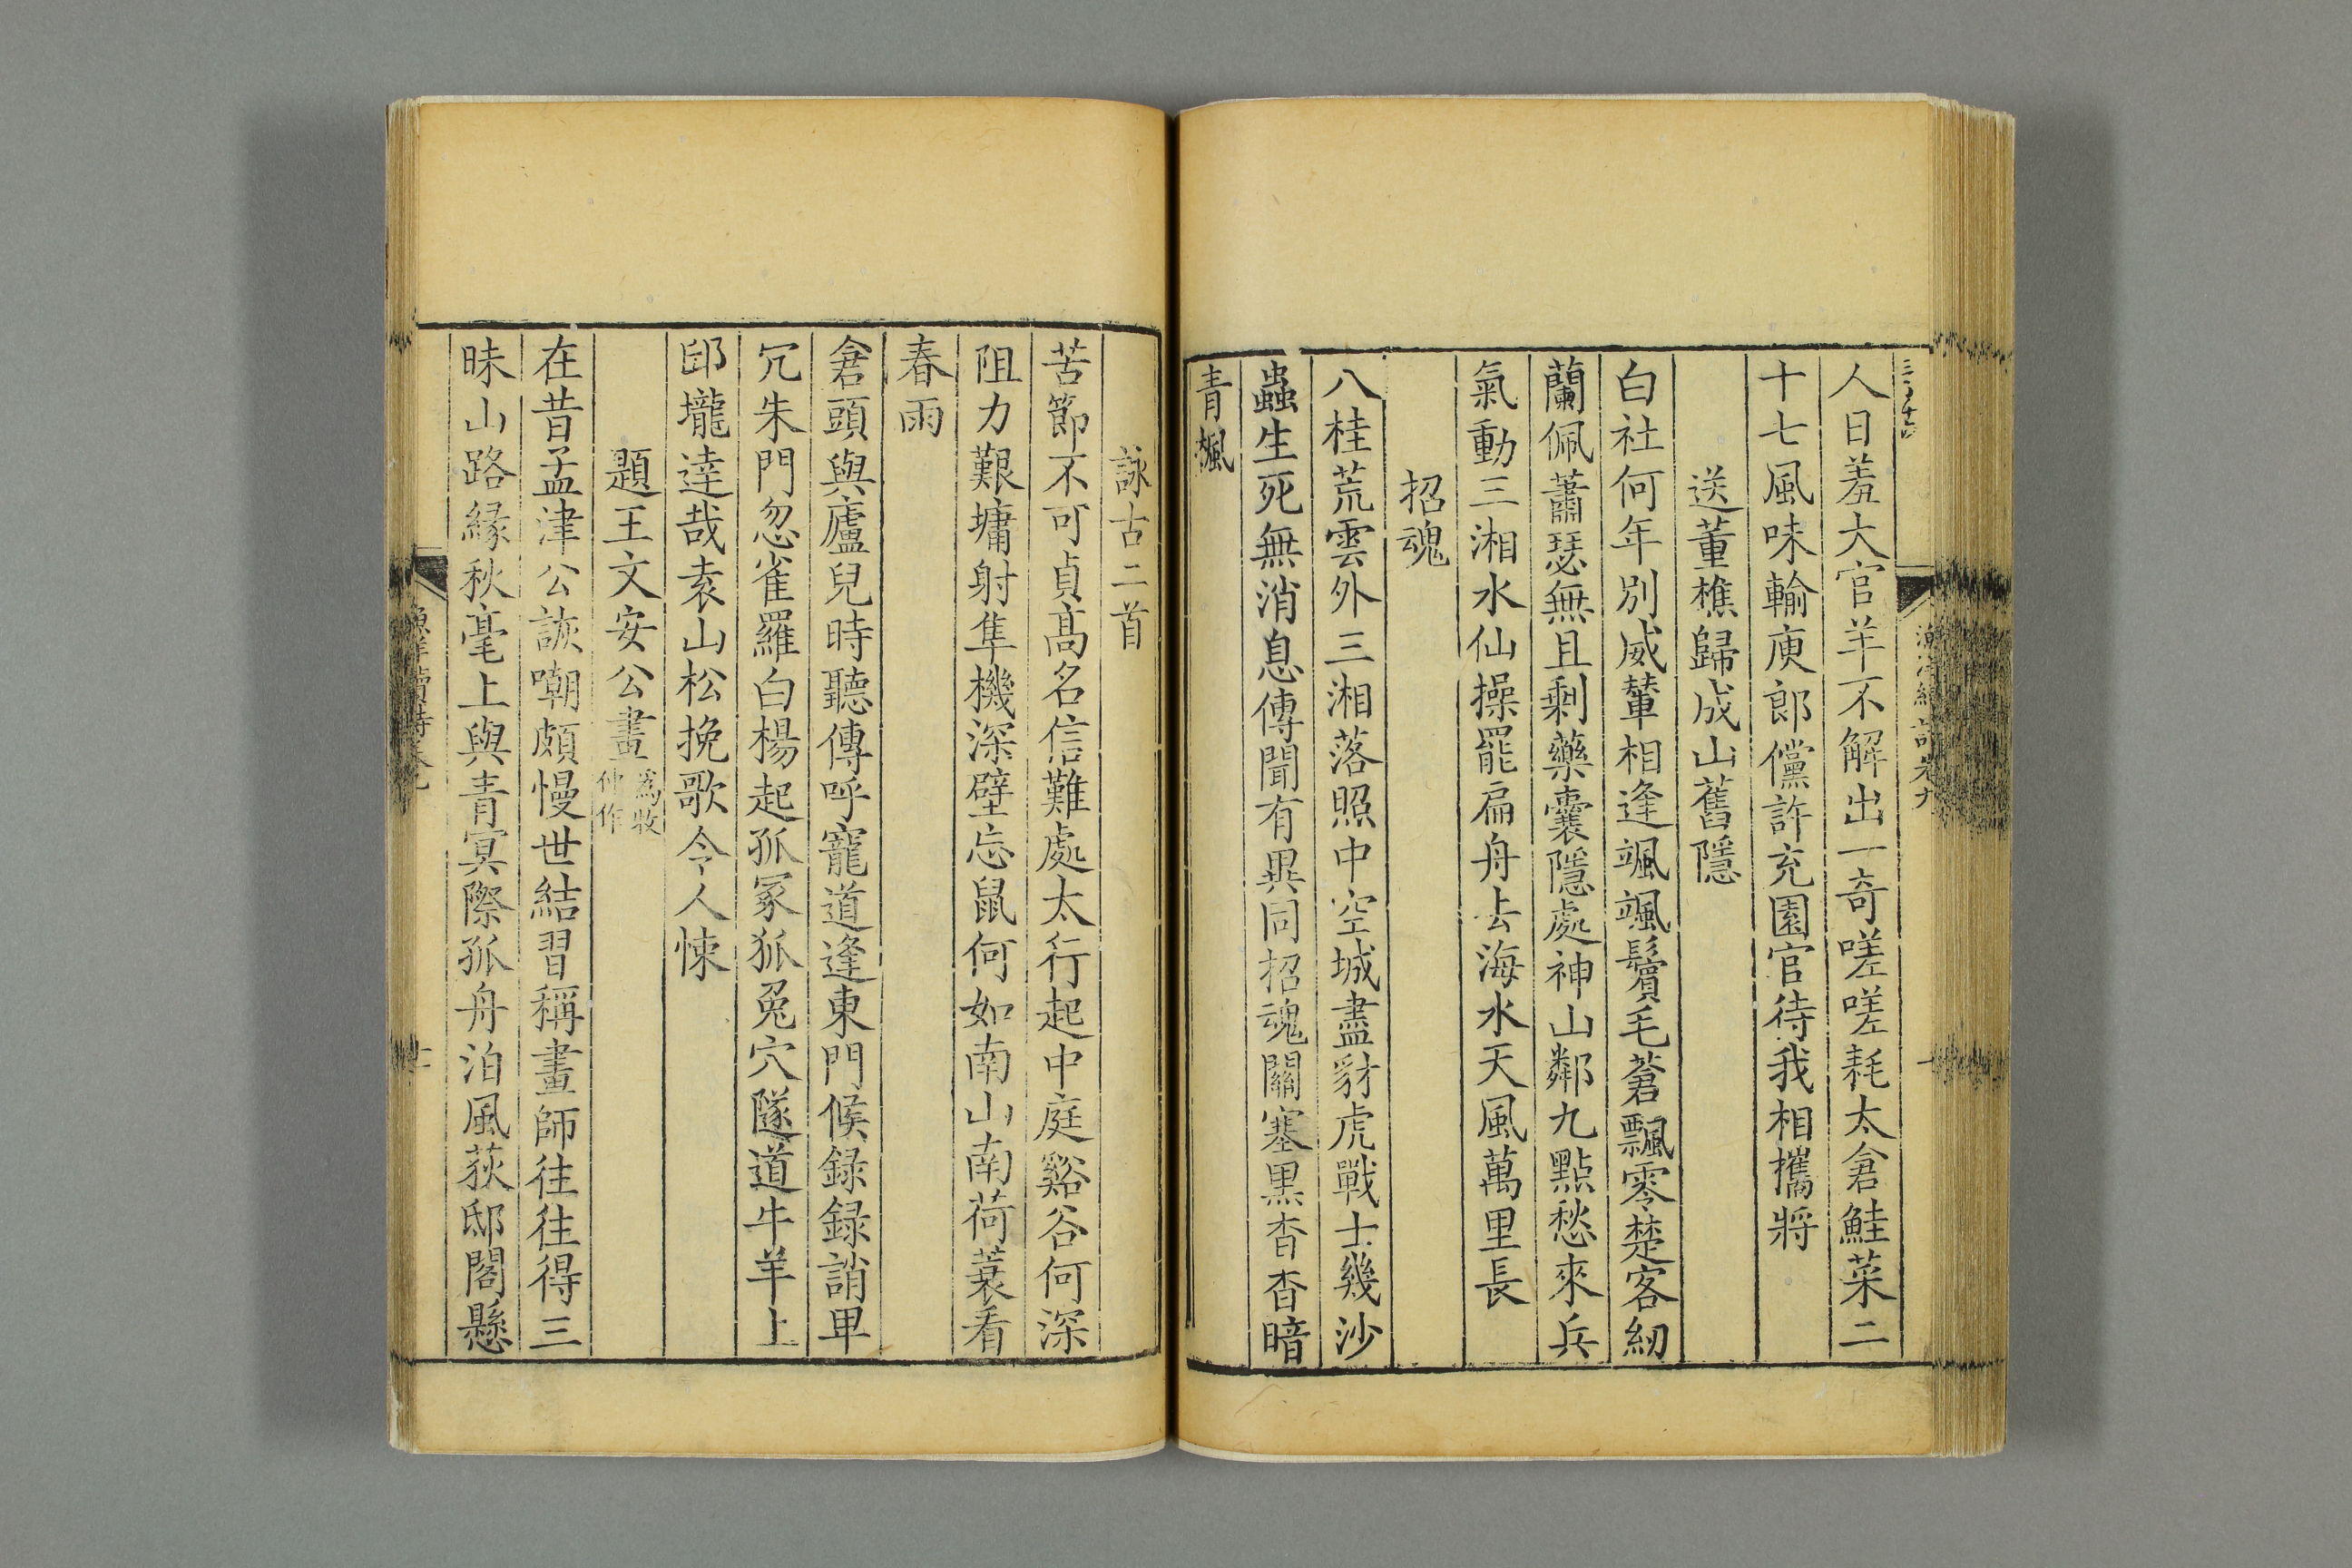 人日羞大官羊不解出一奇嗟嗟耗太倉鮭菜二
十七風味輸庾郎儻許充園官待我相攜將
送董樵歸成山舊隱
白社何年別威輦相逢颯颯鬢毛蒼飄零楚客紉
蘭佩蕭瑟無且剩藥囊隱處神山鄰九點愁來兵
氣動三湘水仙操罷扁舟去海水天風萬里長
招魂
八桂荒雲外三湘落照中空城盡豺虎戰士幾沙
蟲生死無消息傳聞有異同招魂關塞黒杳杳暗
青楓
詠古二首
苦節不可貞高名信難處太行起中庭谿谷何深
阻力艱墉射隼機深壁忘鼠何如南山南荷蓑看
春雨
倉頭與廬兒時聽傳呼寵道逢東門候録録誚卑
冗朱門忽雀羅白楊起孤冢狐兔穴隧道牛羊上
邱壠達哉袁山松挽歌令人悚
題王文安公畫為牧仲作
在昔孟津公詼嘲頗慢世結習稱畫師往往得三
昧山路緣秋毫上與青冥際孤舟泊風荻邸閣懸
漁洋續詩卷九